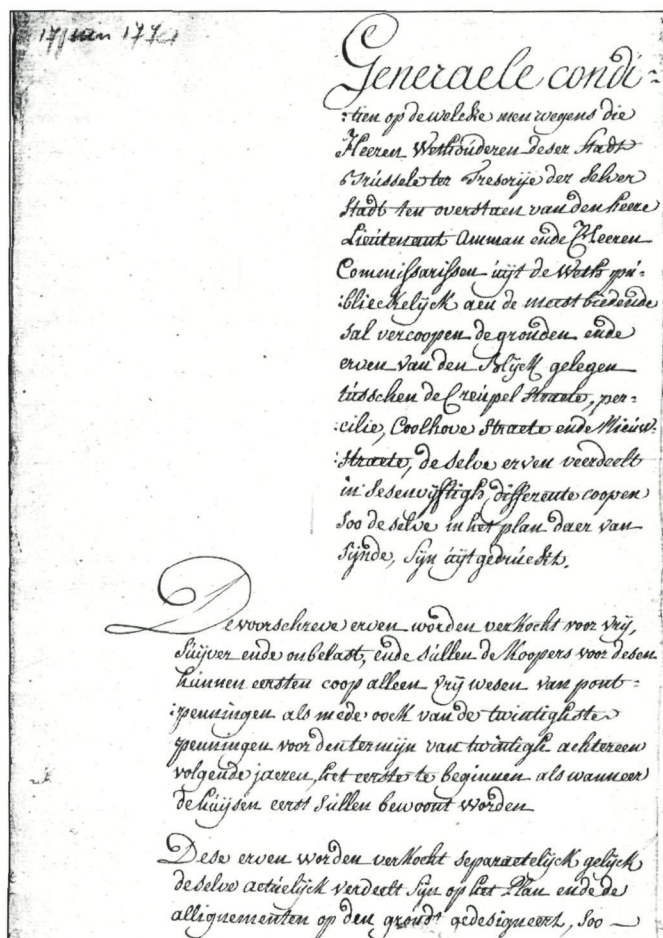 17 juin 1774
Generaele condi=
:tien op de welcke men wegens die
Heeren Wethouderen deser Stadt
Brussele ter Tresorije der selver
Stadt ten overstaen van den heere
Lieutenant Amman ende Heeren
Commissarissen uijt de Weth pu=
:blieckelijck aen de meest biedende
sal vercoopen de gronden ende
erven van den Blijck gelegen
tusschen de Creupel Straete, per=
:cilie, Coolhove Straete ende Nieuw=
:Straete, de selve erven verdeelt
in sesenvijftigh differente coopen
soo de selve in het plan daer van
sijnde, sijn uijtgedruckt.
De voorschreve erven worden verkocht voor vrij,
suijver ende onbelast, ende sullen de koopers voor desen
hunnen eersten coop alleen vrij wesen van pont=
:penningen als mede oock van de twintighste
penningen voor den termijn van twintigh achtereen
volgende jaeren, het eerste te beginnen als wanneer
de huijsen eerst sullen bewoont worden
Dese erven worden verkocht separaetelijck gelijck
de selve actuelijck verdeelt sijn op het Plan ende de
allignementen op den grondt gedesigneert, soo